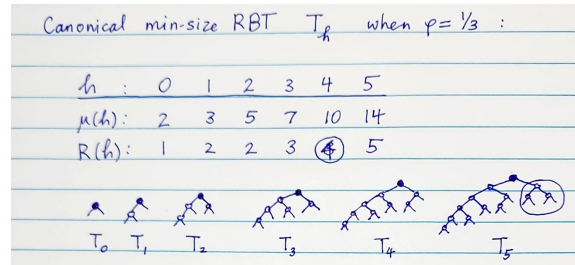 Canonical min-size RBT Tₕ when ρ= 1/3 :
h : 0 1 2 3 4 5
μ(h): 2 3 5 7 10 14
R(h): 1 2 2 3 4 5
T₀ T₁ T₂ T₃ T₄ T₅